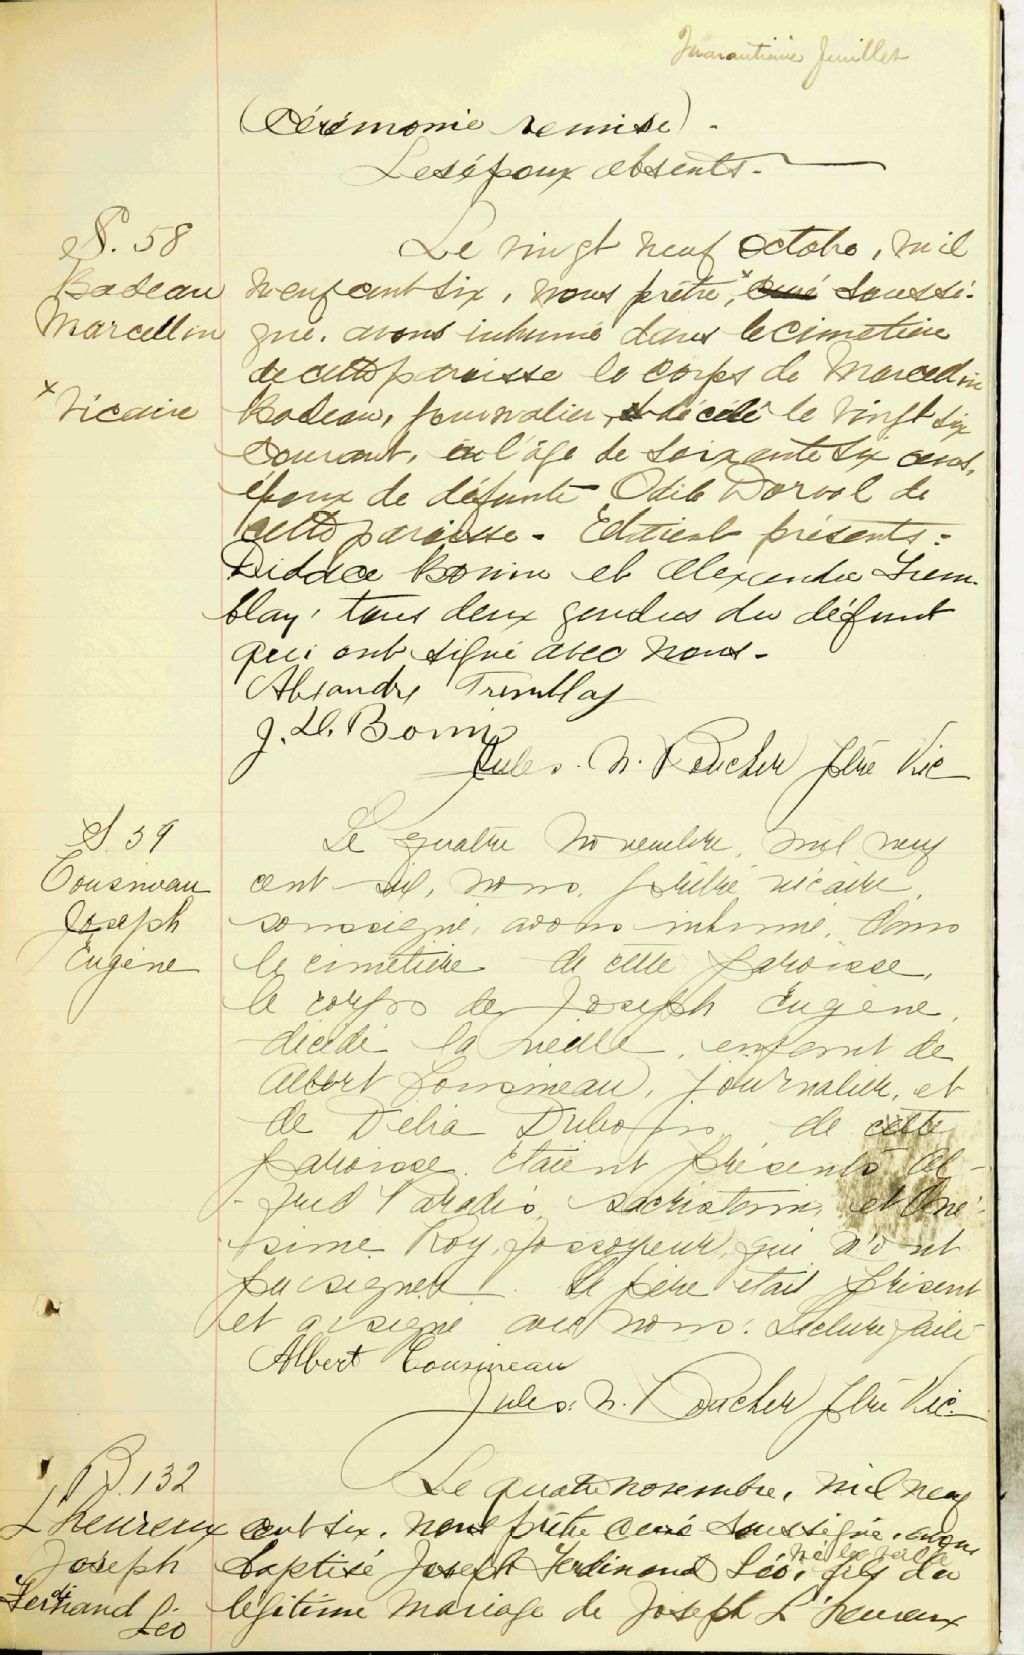 Quarantième feuillet
(Cérémonie remise) -
Les époux absents. -
S. 58
Badeau
Marcellin
x vicaire
Le vingt neuf octobre, mil
neuf cent six, nous prêtre, x curé soussi-
gné, avons inhumé dans le cimetière
de cette paroisse le corps de Marcellin
Badeau, journalier, décédé le vingt six
courant, à l'âge de soixante six ans,
époux de défunte Odile Dorval de
cette paroisse. Etaient présents:
Didace Bonin et Alexandre Trem-
blay, tous deux gendres du défunt
qui ont signé avec nous -
Alexandre Tremblay
J. D. Bonin
Jules. N. Poucher ptre Vic
S. 59
Cousineau
Joseph
Eugène
Le quatre novembre, mil neuf
cent six, nous, prêtre vicaire,
soussigné, avons inhumé, dans
le cimetière de cette paroisse,
le corps de Joseph Eugène,
décédé la veille, enfant de
Albert Cousineau, journalier, et
de Délia Dubois, de cette
paroisse. Etaient présents Al-
-fred Paradis, sacristain, et Oné-
sime Roy, fossoyeur, qui n'ont
pu signer. Le père était présent
et a signé avec nous. Lecture faite
Albert Cousineau
Jules. N. Poucher ptre Vic.
B. 132
L'heureux
Joseph
Ferdinand
Léo
Le quatre novembre, mil neuf
cent six, nous prêtre curé soussigné, avons
né la veille
baptisé Joseph Ferdinand Léo, fils du
légitime mariage de Joseph L'heureux